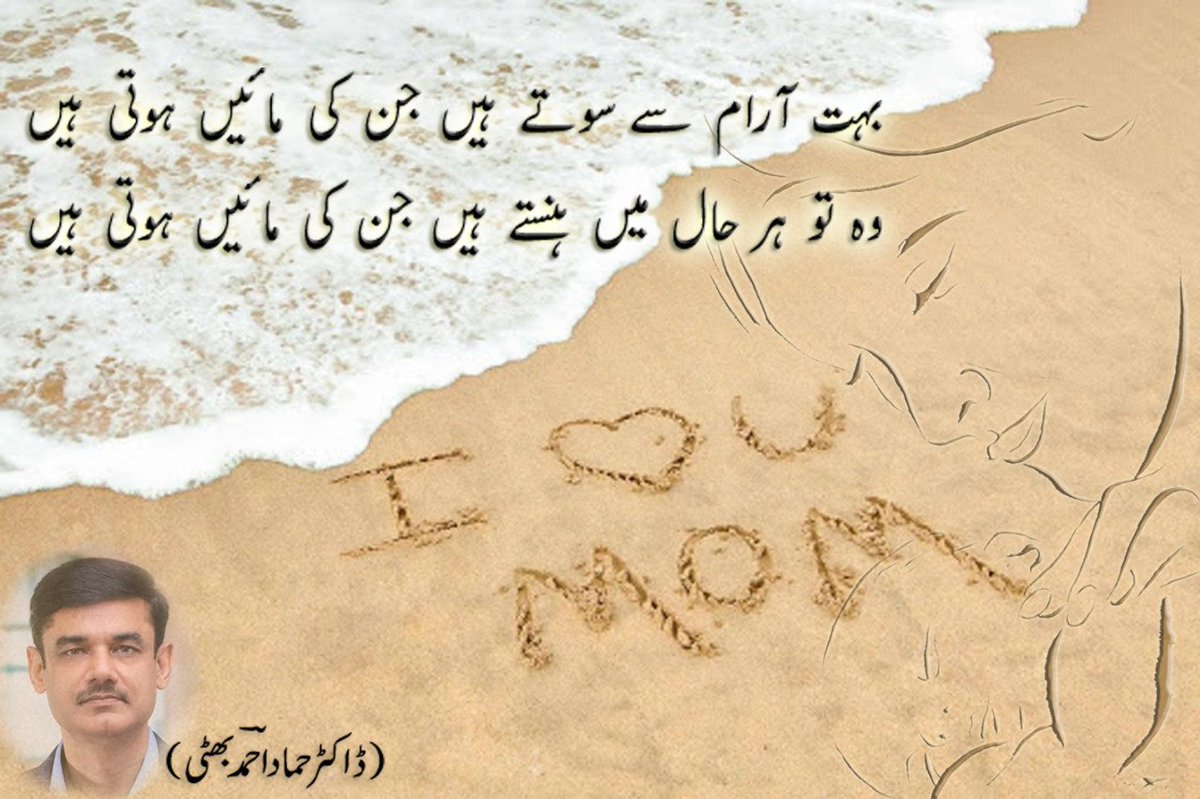 بہت آرام سے سوتے ہیں جن کی مائیں ہوتی ہیں
وہ تو ہر حال میں ہنستے ہیں جن کی مائیں ہوتی ہیں
I ♥ U
MOM
(ڈاکٹر حماد احمد بھٹی)